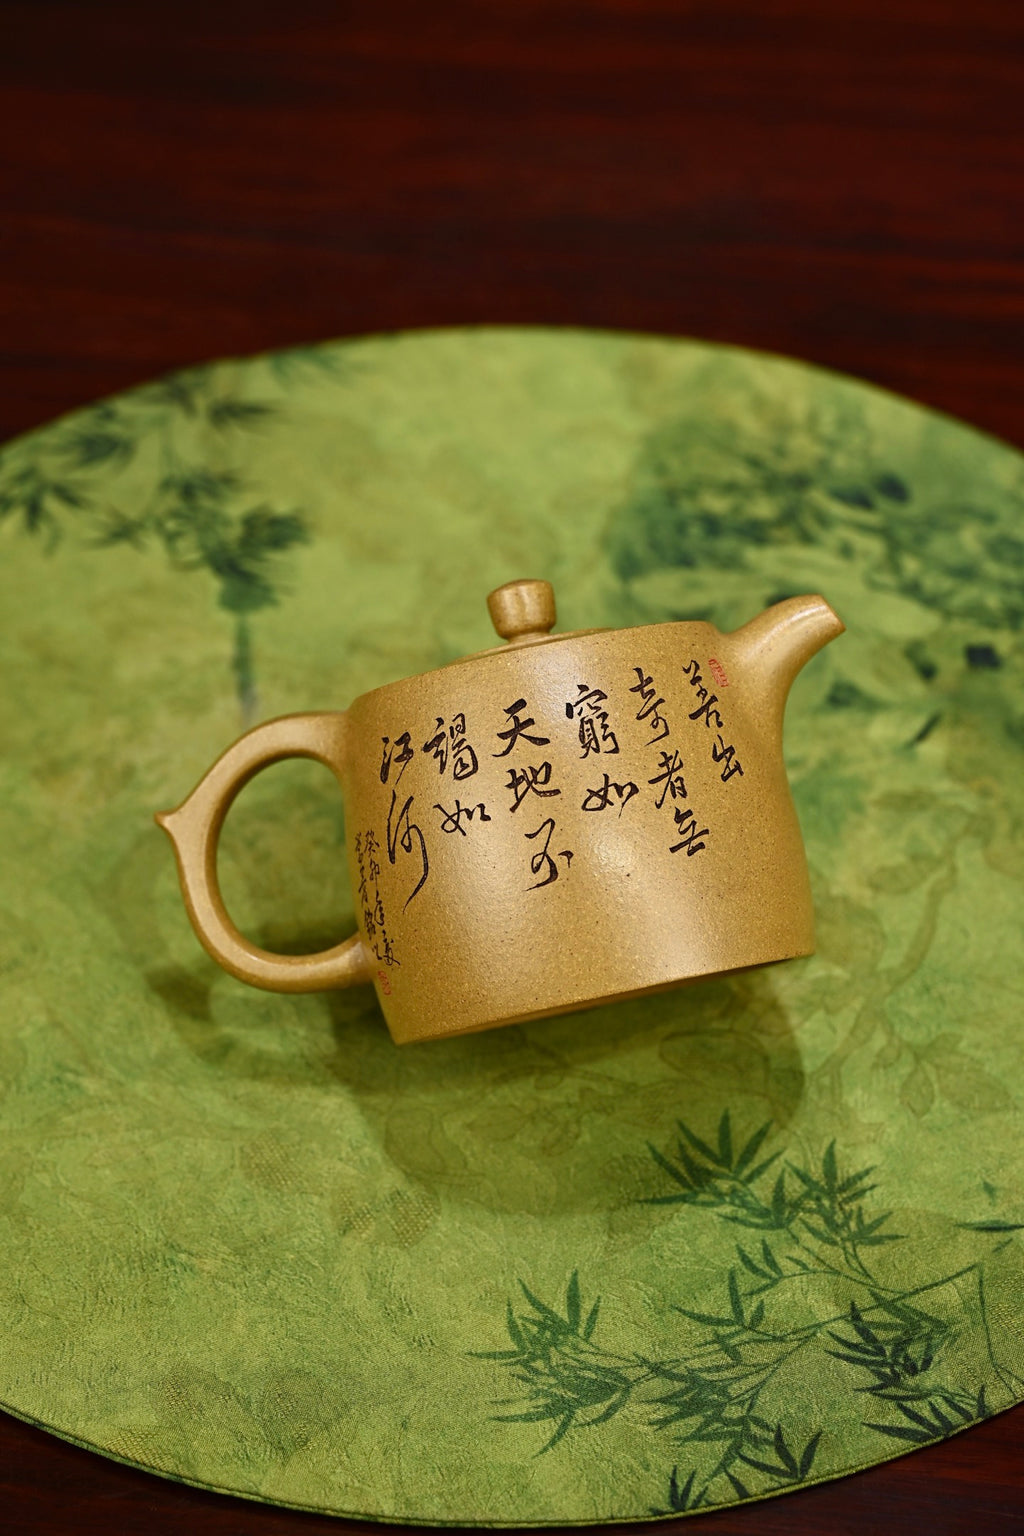 善出
奇者無
窮如
天地不
竭如
江河
癸卯年夏